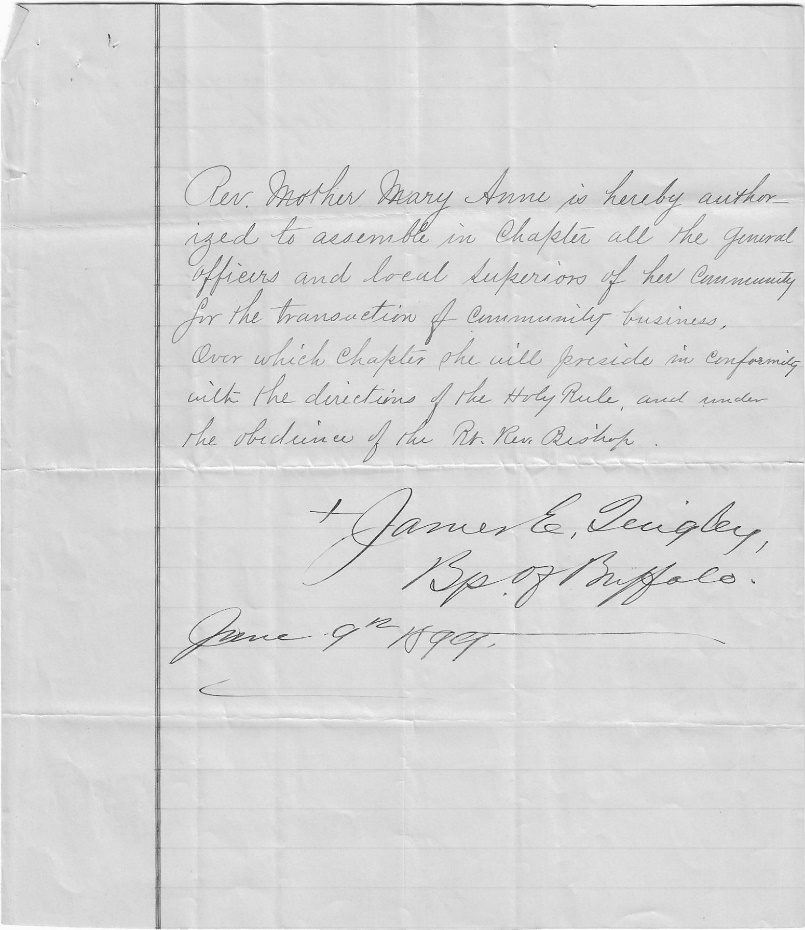 Rev. Mother Mary Anne is hereby author-
ized to assemble in Chapter all the general
officers and local superiors of her Community
for the transaction of Community business.
Over which Chapter she will preside in conformity
with the directions of the Holy Rule, and under
the obedience of the Rt. Rev. Bishop.
+ James E. Quigley,
Bp. of Buffalo.
June 9th 1899.